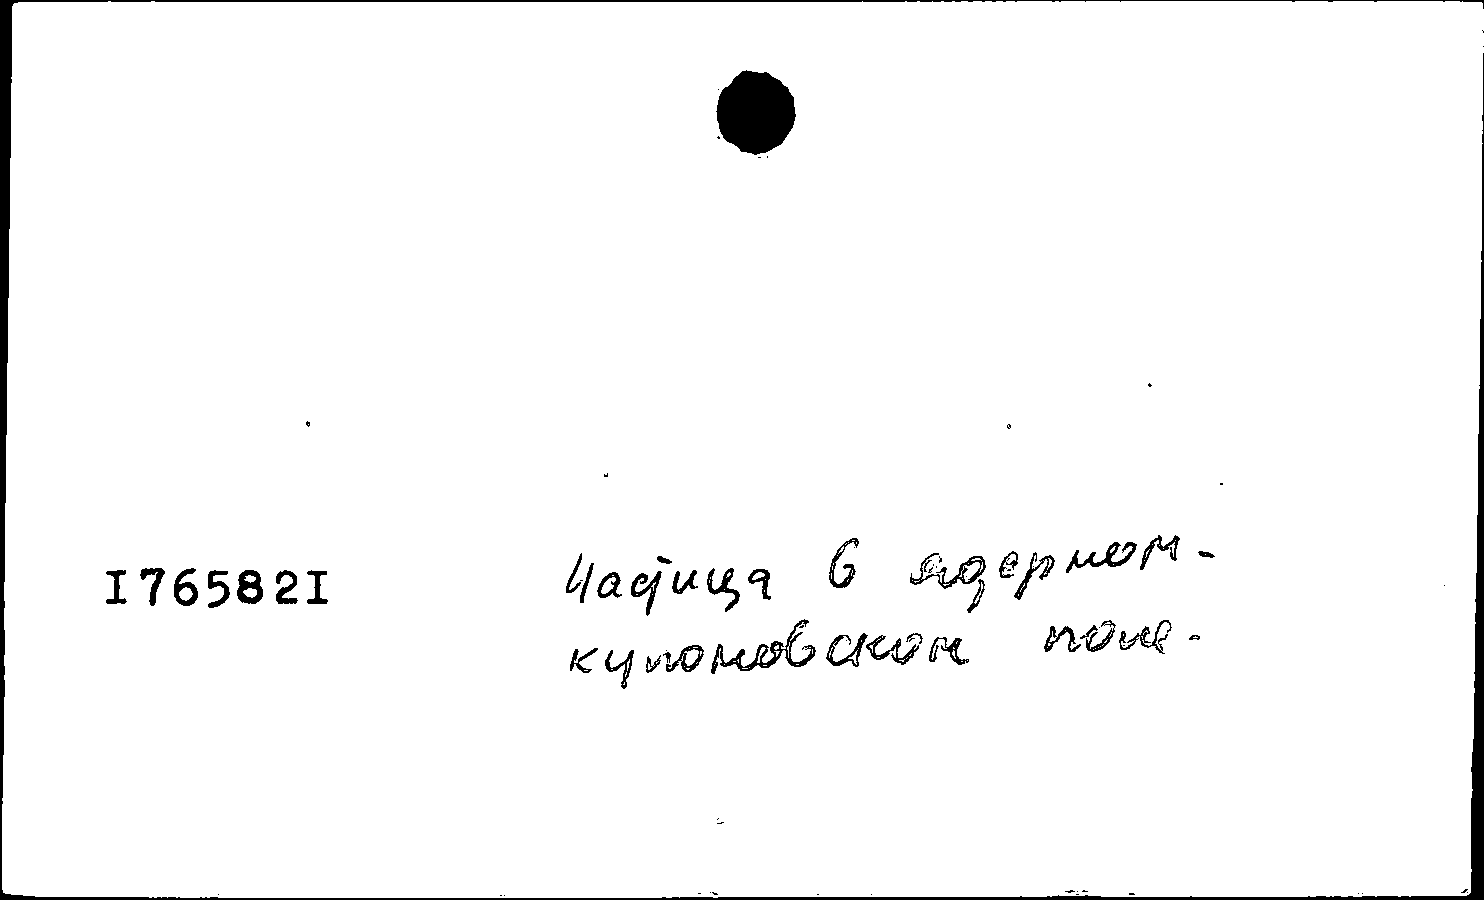 I76582I
Частица в ядерном-
кулоновском поле.